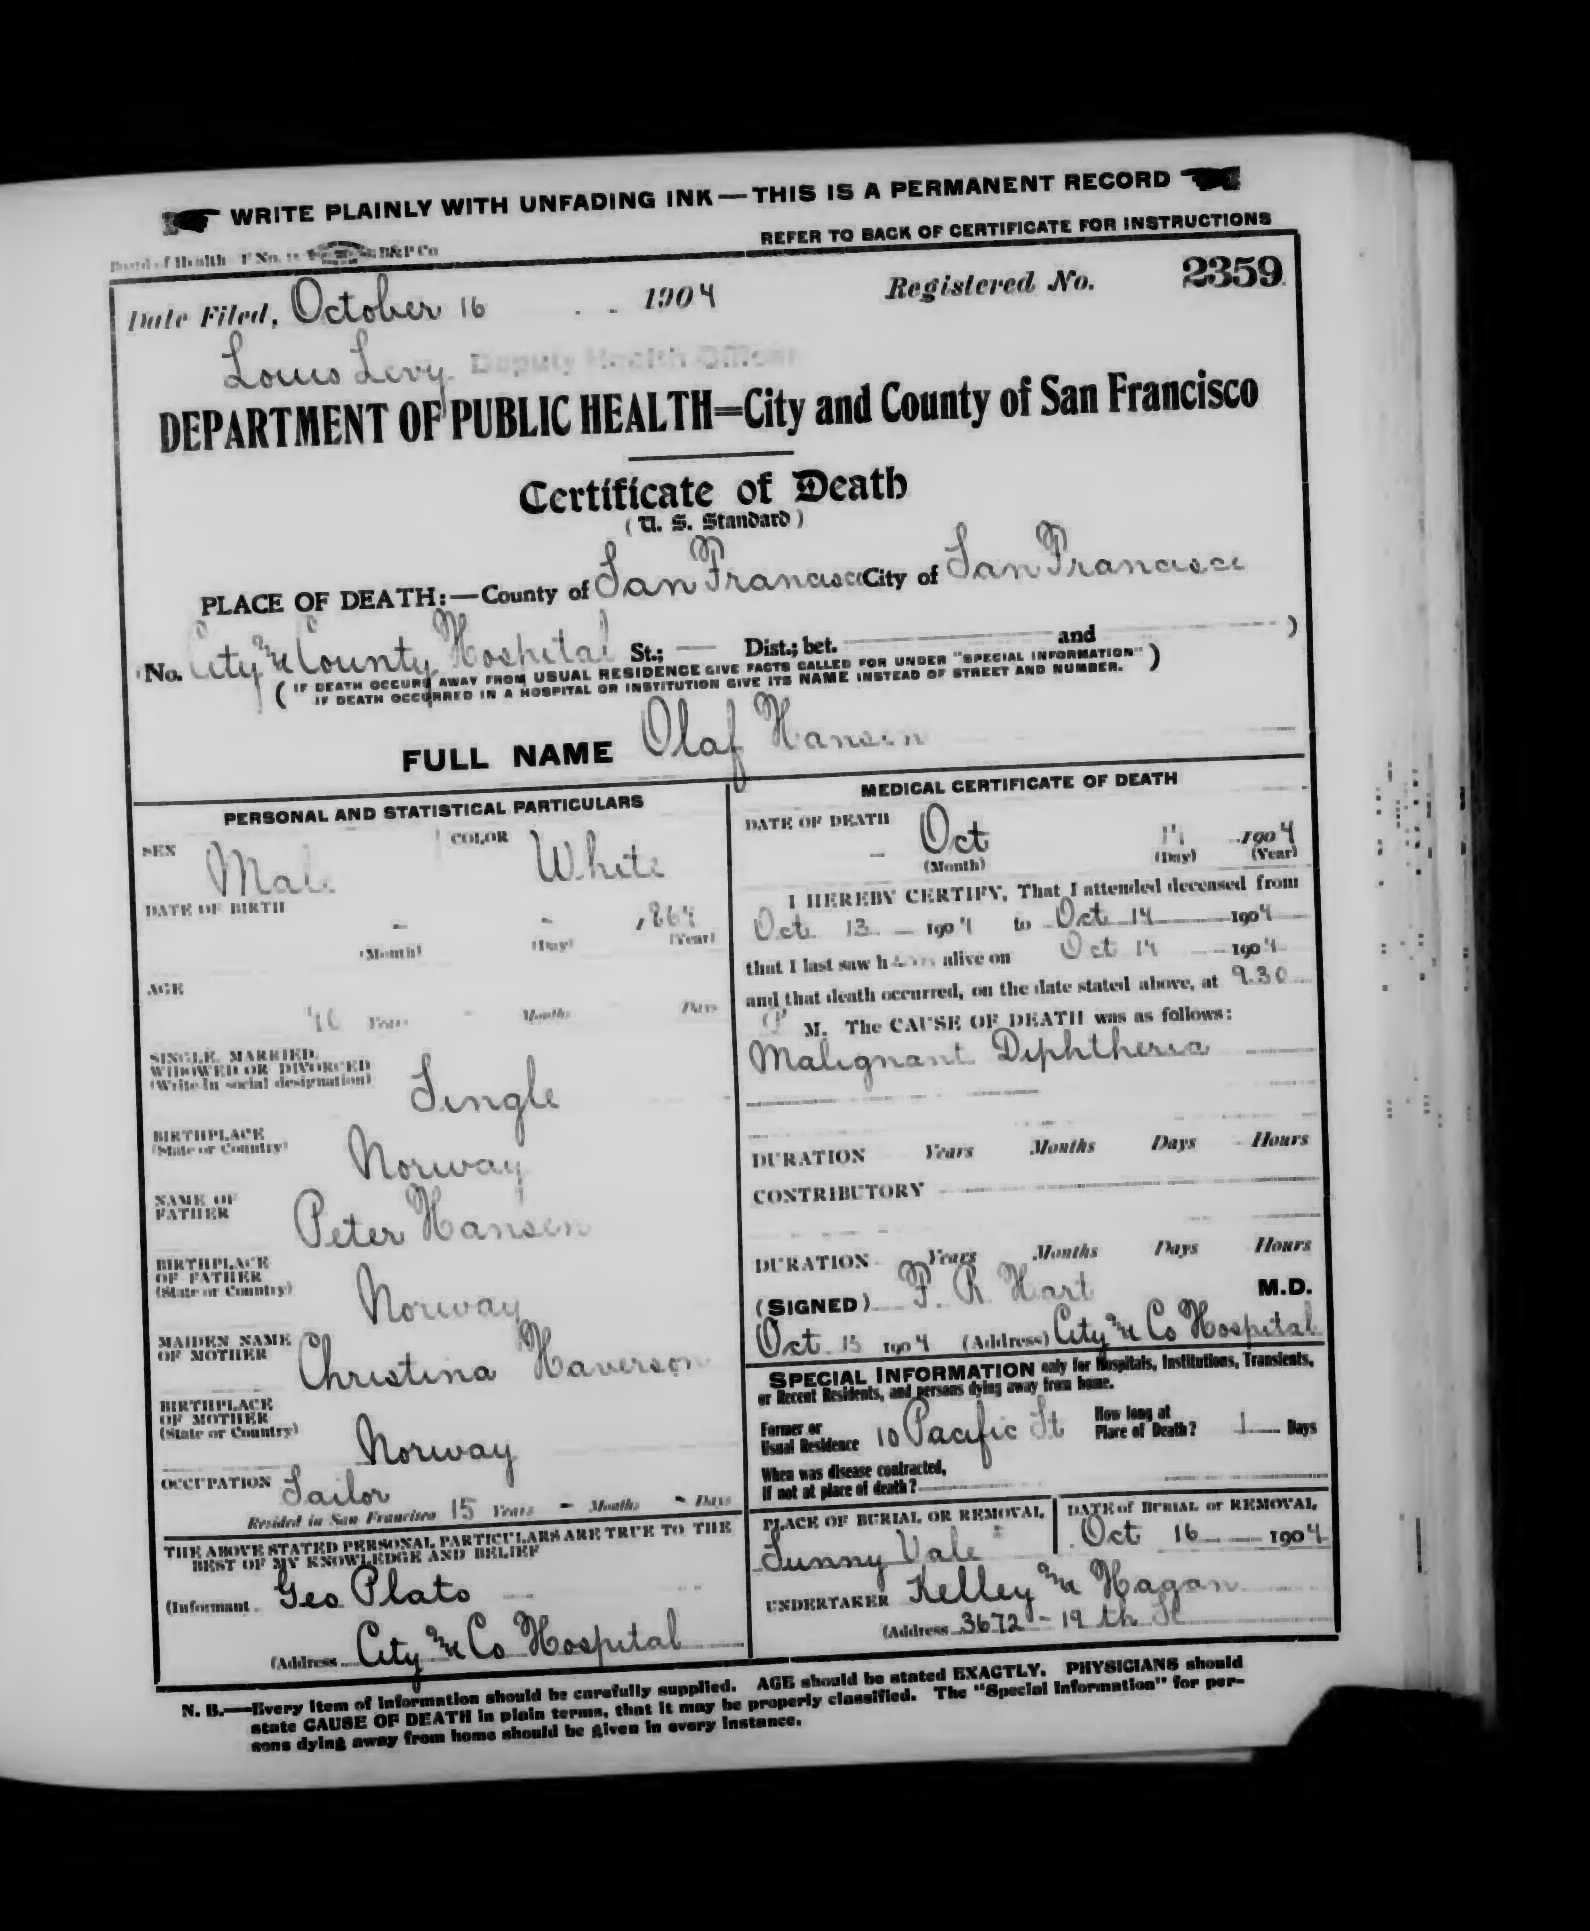 WRITE PLAINLY WITH UNFADING INK — THIS IS A PERMANENT RECORD
REFER TO BACK OF CERTIFICATE FOR INSTRUCTIONS
Board of Health F No. B&P Co
Date Filed, October 16 1904 Registered No. 2359
Louis Levy Deputy Health Officer
DEPARTMENT OF PUBLIC HEALTH=City and County of San Francisco
Certificate of Death
(U. S. Standard)
PLACE OF DEATH:—County of San Francisco City of San Francisco
No. City & County Hospital St.; — Dist.; bet. and )
( IF DEATH OCCURS AWAY FROM USUAL RESIDENCE GIVE FACTS CALLED FOR UNDER "SPECIAL INFORMATION" )
IF DEATH OCCURRED IN A HOSPITAL OR INSTITUTION GIVE ITS NAME INSTEAD OF STREET AND NUMBER.
FULL NAME Olaf Hansen
PERSONAL AND STATISTICAL PARTICULARS
SEX Male COLOR White
DATE OF BIRTH
- - 1864
(Month) (Day) (Year)
AGE
40 Years - Months Days
SINGLE, MARRIED,
WIDOWED OR DIVORCED
(Write in social designation) Single
BIRTHPLACE
(State or Country) Norway
NAME OF
FATHER Peter Hansen
BIRTHPLACE
OF FATHER
(State or Country) Norway
MAIDEN NAME
OF MOTHER Christina Haverson
BIRTHPLACE
OF MOTHER
(State or Country) Norway
OCCUPATION Sailor
Resided in San Francisco 15 Years - Months - Days
THE ABOVE STATED PERSONAL PARTICULARS ARE TRUE TO THE
BEST OF MY KNOWLEDGE AND BELIEF
(Informant Geo Plato
(Address City & Co Hospital
MEDICAL CERTIFICATE OF DEATH
DATE OF DEATH Oct 14 1904
(Month) (Day) (Year)
I HEREBY CERTIFY, That I attended deceased from
Oct 13 1904 to Oct 14 1904
that I last saw him alive on Oct 14 1904
and that death occurred, on the date stated above, at 9.30
P M. The CAUSE OF DEATH was as follows:
Malignant Diphtheria
DURATION Years Months Days Hours
CONTRIBUTORY
DURATION Years Months Days Hours
(SIGNED) F. R. Hart M.D.
Oct. 15 1904 (Address) City & Co Hospital
SPECIAL INFORMATION only for Hospitals, Institutions, Transients,
or Recent Residents, and persons dying away from home.
Former or
Usual Residence 10 Pacific St How long at
Place of Death? 1 Days
When was disease contracted,
If not at place of death?
PLACE OF BURIAL OR REMOVAL, DATE of BURIAL or REMOVAL,
Sunny Vale Oct 16 1904
UNDERTAKER Kelley & Hagan
(Address 3672 - 19 th St
N. B.—Every item of information should be carefully supplied. AGE should be stated EXACTLY. PHYSICIANS should
state CAUSE OF DEATH in plain terms, that it may be properly classified. The "Special Information" for per-
sons dying away from home should be given in every instance.